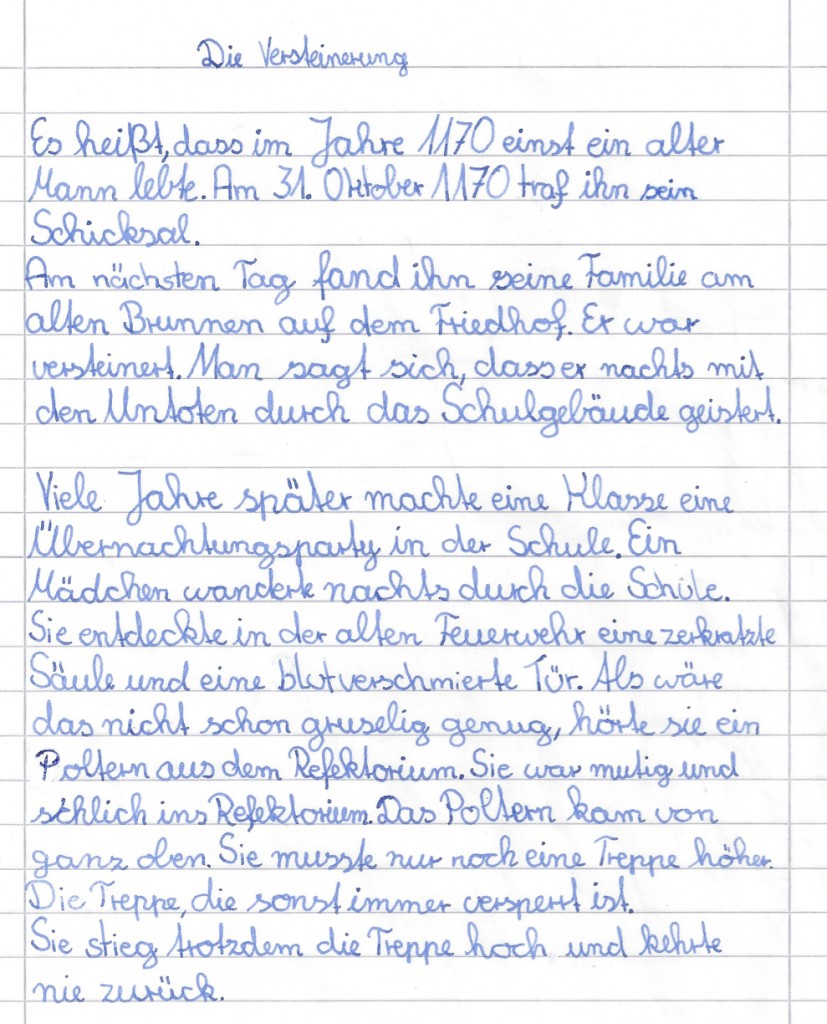 Die Versteinerung
Es heißt, dass im Jahre 1170 einst ein alter
Mann lebte. Am 31. Oktober 1170 traf ihn sein
Schicksal.
Am nächsten Tag fand ihn seine Familie am
alten Brunnen auf dem Friedhof. Er war
versteinert. Man sagt sich, dass er nachts mit
den Untoten durch das Schulgebäude geistert.
Viele Jahre später machte eine Klasse eine
Übernachtungsparty in der Schule. Ein
Mädchen wanderte nachts durch die Schule.
Sie entdeckte in der alten Feuerwehr eine zerkratzte
Säule und eine blutverschmierte Tür. Als wäre
das nicht schon gruselig genug, hörte sie ein
Poltern aus dem Refektorium. Sie war mutig und
schlich ins Refektorium. Das Poltern kam von
ganz oben. Sie musste nur noch eine Treppe höher.
Die Treppe, die sonst immer versperrt ist.
Sie stieg trotzdem die Treppe hoch und kehrte
nie zurück.